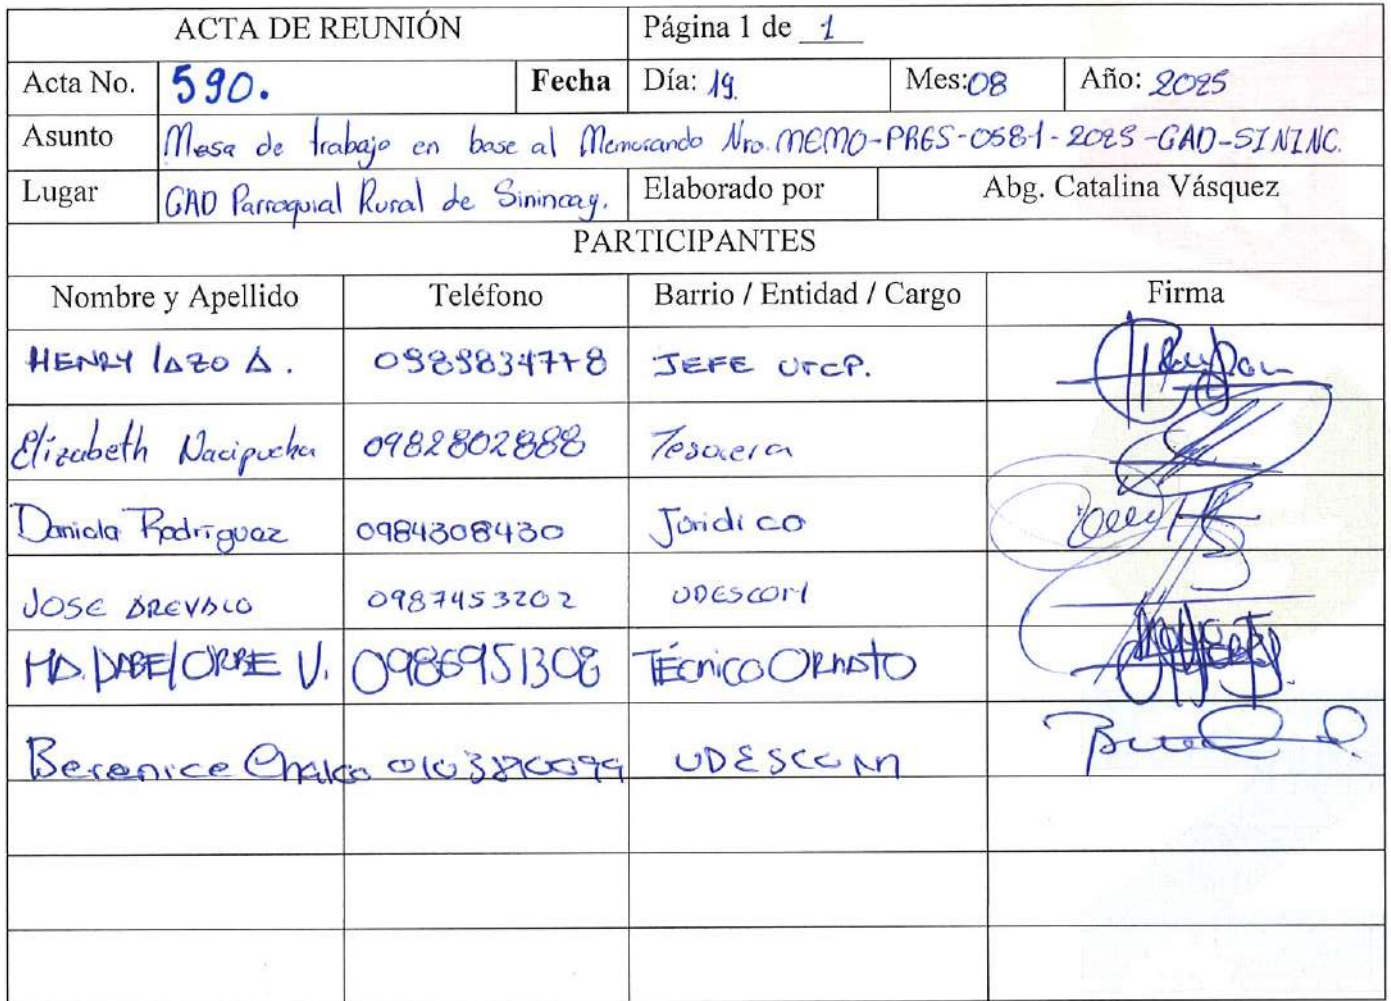 ACTA DE REUNIÓN Página 1 de 1
Acta No. 590. Fecha Día: 19. Mes: 08 Año: 2025
Asunto Mesa de trabajo en base al Memorando Nro. MEMO-PRES-0581-2025-GAD-SININC.
Lugar GAD Parroquial Rural de Sinincay. Elaborado por Abg. Catalina Vásquez
PARTICIPANTES
Nombre y Apellido Teléfono Barrio / Entidad / Cargo Firma
HENRY LAZO A. JEFE UTCP.
Elizabeth Nacipucha 0982802888 Tesorera
Daniela Rodríguez 0984308430 Jurídico
JOSE AREVALO 0987453202 UDESCOM
0986951308 TÉCNICO ORNATO
Berenice Chalco UDESCOM